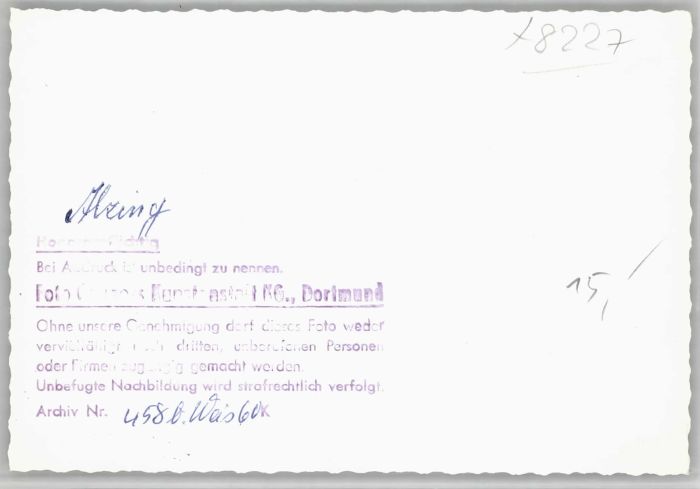 x8227
Alzing
Bei Abdruck ist unbedingt zu nennen.
Foto Kunstanstalt KG., Dortmund
15,
Ohne unsere Genehmigung darf dieses Foto weder
vervielfältigt noch dritten, unberufenen Personen
oder Firmen zugängig gemacht werden.
Unbefugte Nachbildung wird strafrechtlich verfolgt.
Archiv Nr. K